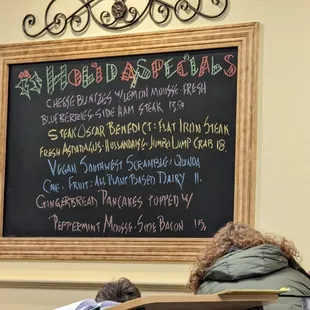 Holiday Specials
Cheese Blintzes w/Lemon Mousse-Fresh
Blueberries-Side Ham Steak 13.50
Steak Oscar Benedict: Flat Iron Steak
Fresh Asparagus-Hollandaise-Jumbo Lump Crab 18.
Vegan Southwest Scramble/Quinoa
Cake. Fruit: All Plant Based Dairy 11.
Gingerbread Pancakes topped w/
Peppermint Mousse-Side Bacon 15.